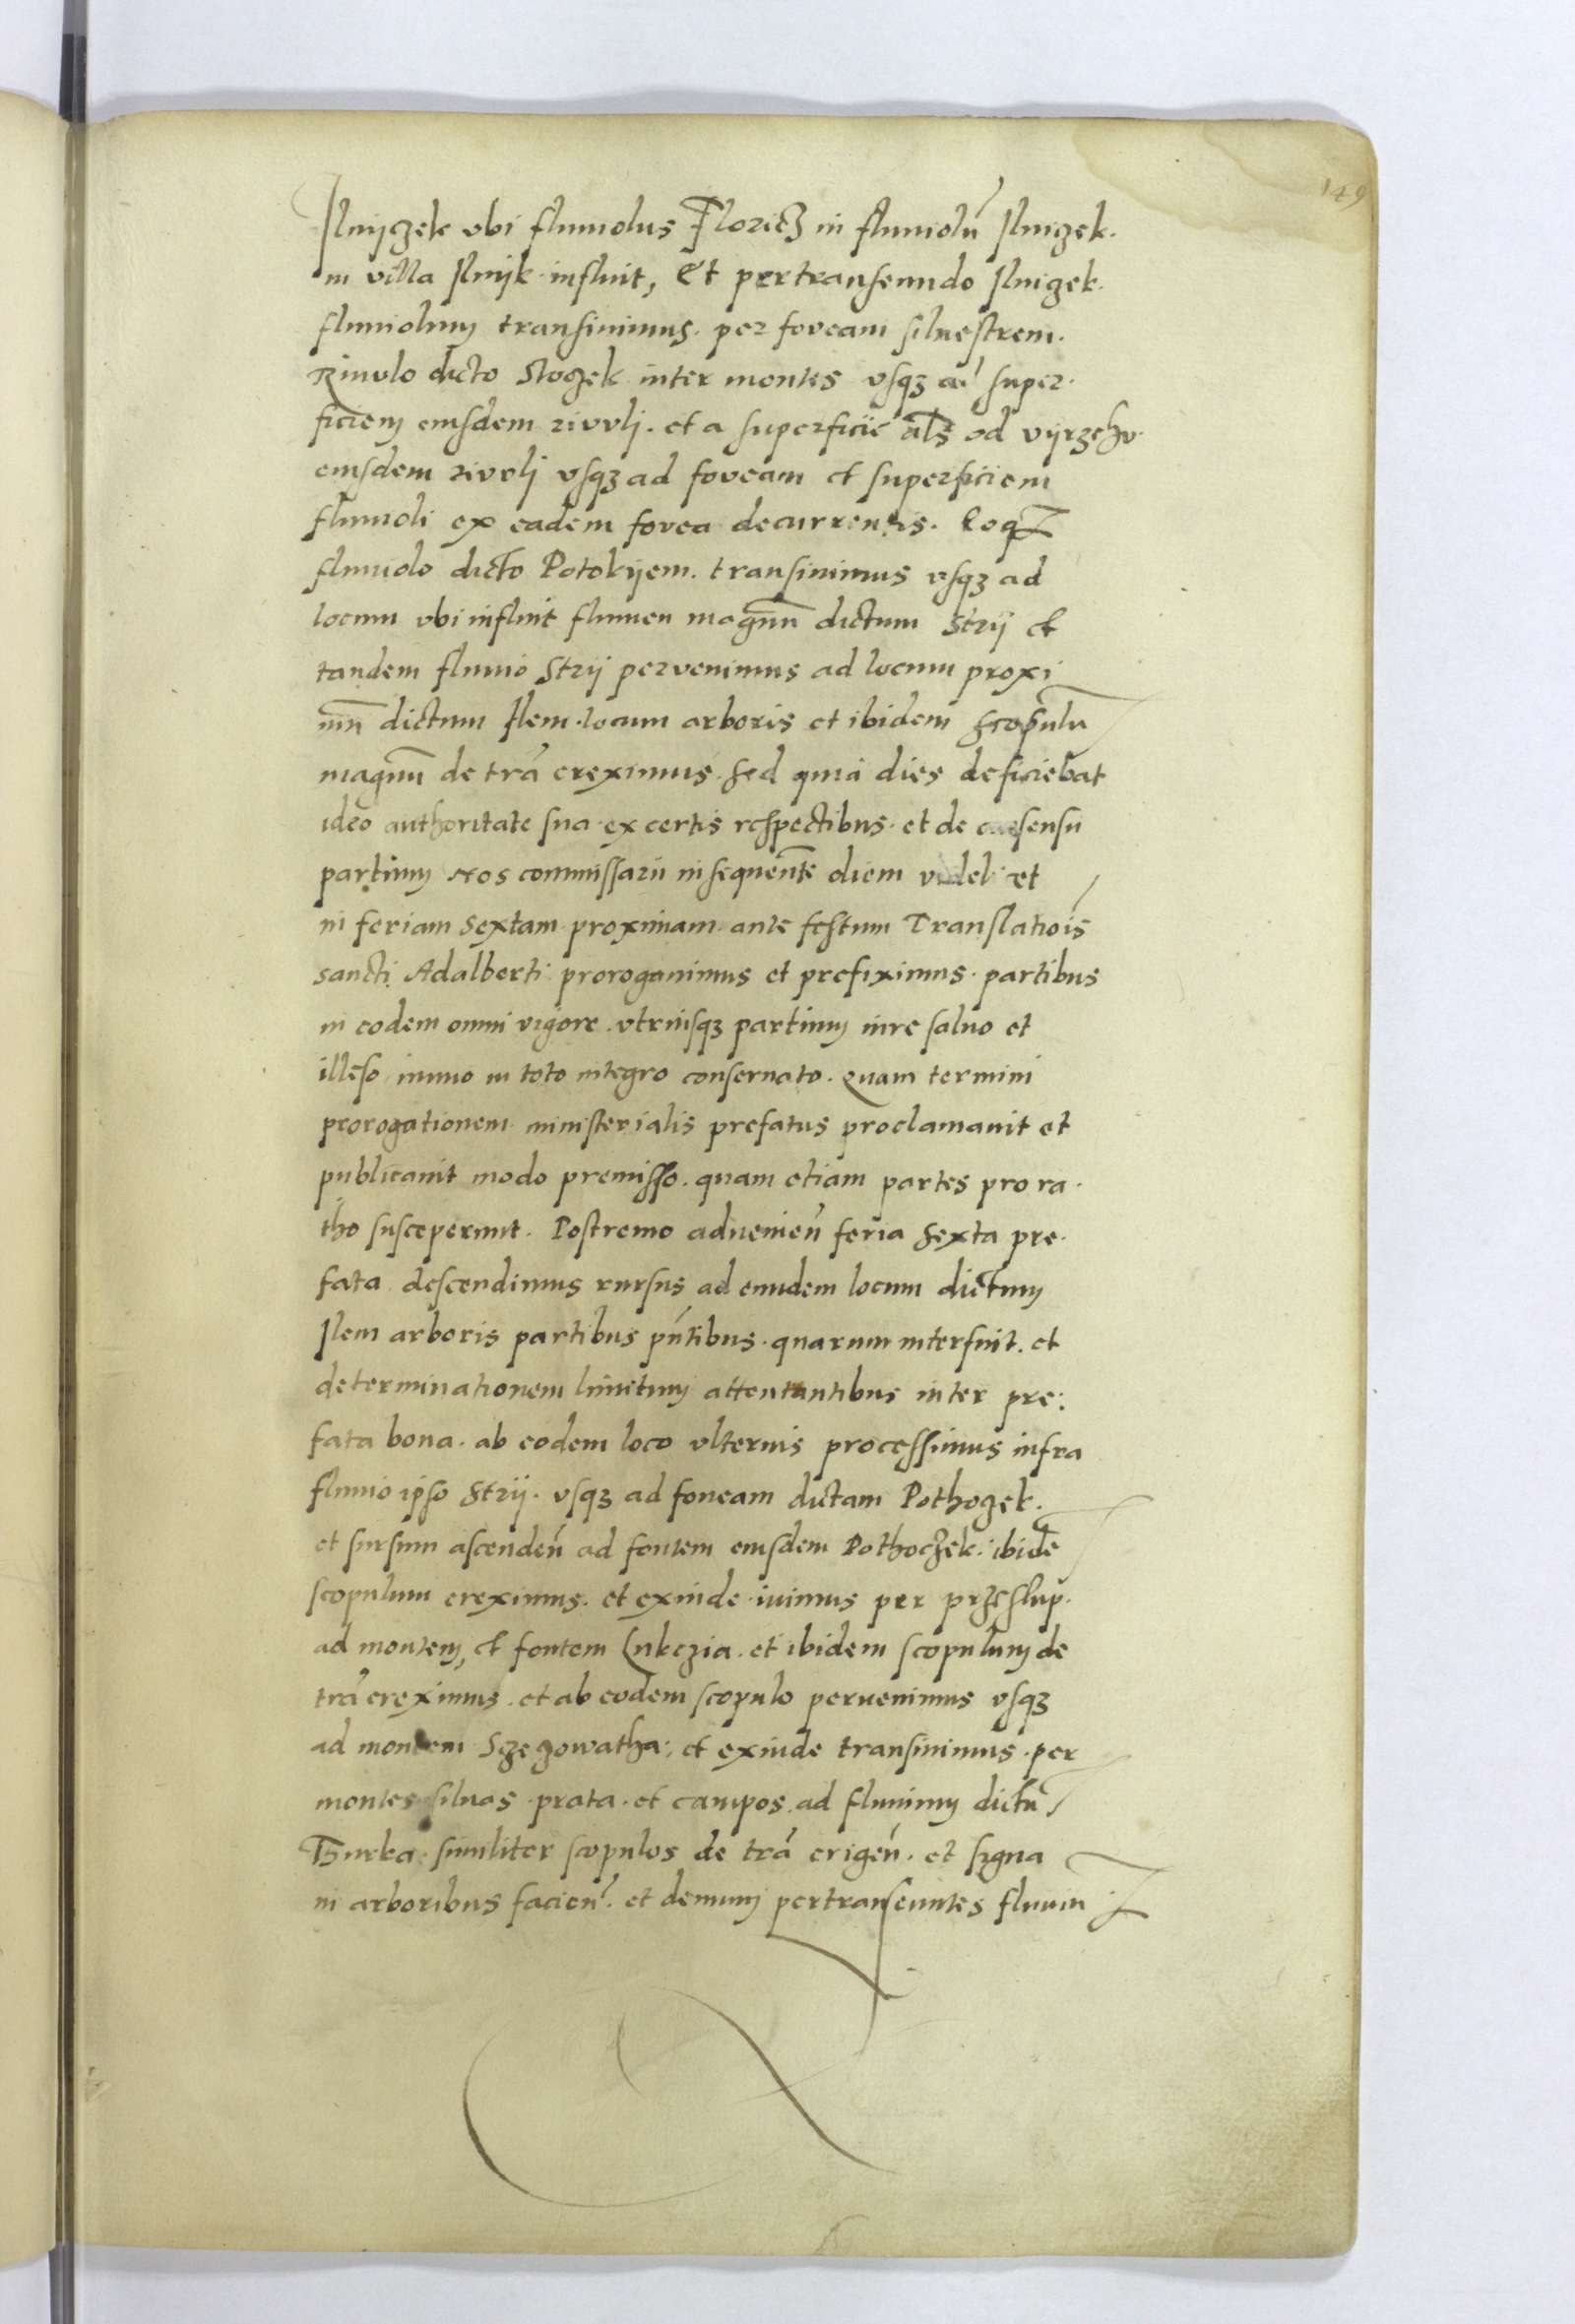 149
Ilnyczek vbi fluuiolus Floricz in fluuiolū Ilniczek.
in villa Ilnijk influit, Et pertranseundo Ilniczek.
fluuiolum transiuimus. per foveam siluestrem.
Riuulo dicto Stoczek inter montes vsqꝫ ad super-
ficiem eiusdem rivvlj. et a superficie als od vyrzchv.
eiusdem rivvlj vsqꝫ ad foveam et superficiem
fluuioli ex eadem fovea decurrentis. Eoqꝫ
fluuiolo dicto Potokijem. transiuimus vsqꝫ ad
locum vbi influit flumen magnū dictum Strij et
tandem fluuio Strij pervenimus ad locum proxi
mū dictum Ilem. locum arboris et ibidem scopulū
magnū de tr̄a ereximus. Sed quia dies deficiebat
ideo authoritate sua ex certis respectibus. et de cōsensu
partium Nos commissarii in sequentē diem videlicet
in feriam sextam proximam ante festum Translatiōis
sancti Adalberti prorogauimus et prefiximus partibus
in eodem omni vigore vtriusqꝫ partium iure saluo et
illeso immo in toto integro conseruato. Quam termini
prorogationem ministerialis prefatus proclamauit et
publicauit modo premisso. quam etiam partes pro ra-
tho susceperunt. Postremo aduenien̄ feria sexta pre-
fata descendimus rursus ad eundem locum dictum
Ilem arboris partibus pn̄tibus. quarum interfuit. et
determinationem limitum attentantibus inter pre:
fata bona. ab eodem loco vlterius processimus infra
fluuio ipso Strij. vsqꝫ ad foueam dictam Pothoczek.
et sursum ascenden̄ ad fontem eiusdem Pothoczek. ibidē
scopulum ereximus. et exinde iuimus per przeslup.
ad montem, et fontem Lukczia. et ibidem scopulum de
tr̄a ereximus. et ab eodem scopulo peruenimus vsqꝫ
ad montem Sczezowatha: et exinde transiuimus. per
montes siluas prata. et campos. ad fluuium dictū
Thurka similiter scopulos de tr̄a erigen̄. et signa
in arboribus facien̄. et demum pertranseuntes fluuiū